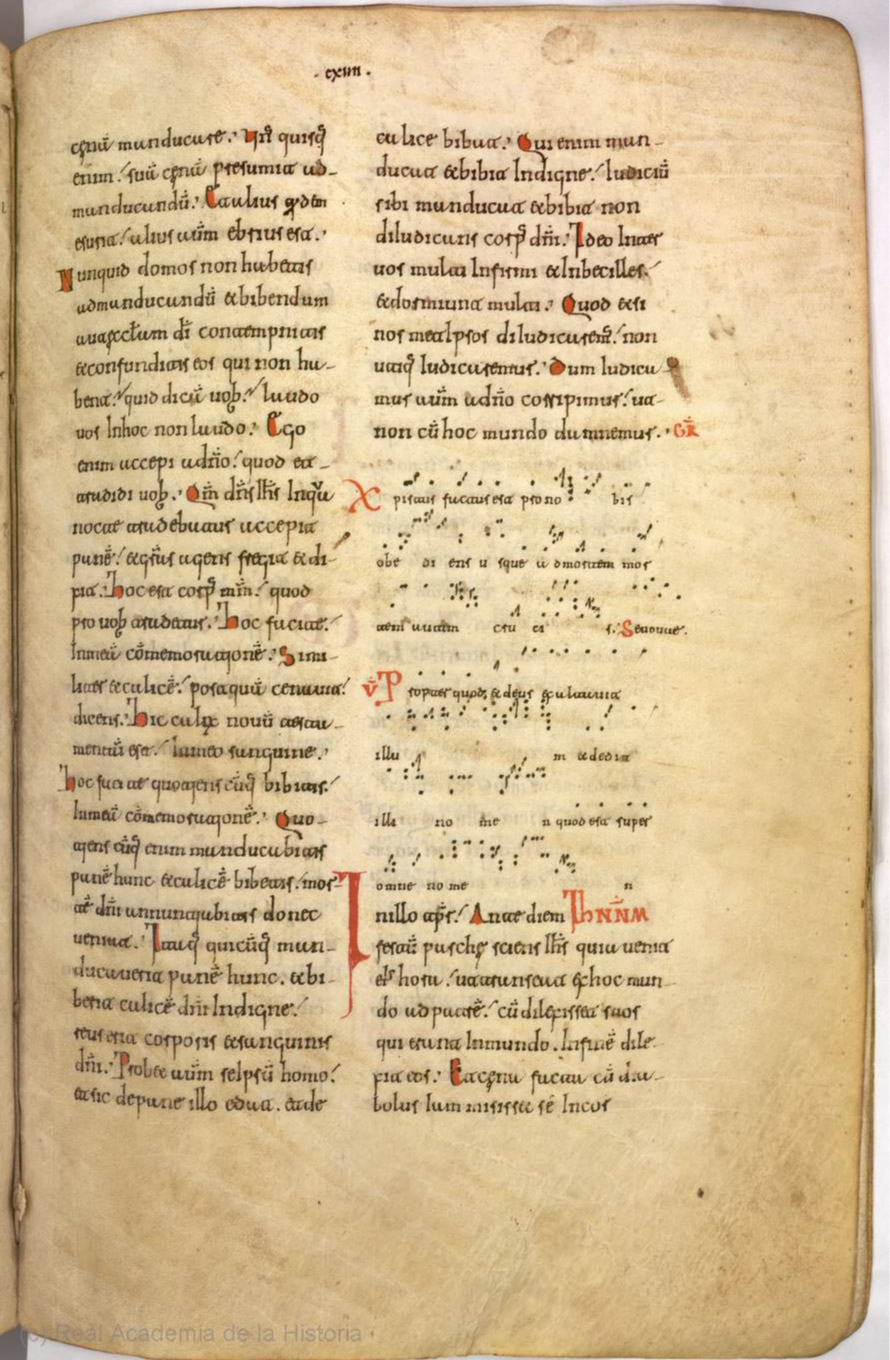 · cxiiii ·
cęnā manducare. Un̄ quisq̄
enim suā cęnā presumit ad
manducandū. Et alius qđem
esurit alius autm̄ ebrius est.
Nunquid domos non habetis
ad manducandū et bibendum
aut ęcclam dī contempnitis
et confunditis eos qui non ha
bent. quid dicā uob. laudo
uos In hoc non laudo. Ego
enim accepi a dn̄o quod et
tradidi uob. Qm̄ dn̄s Ih̄s In qua
nocte tradebatur accepit
panē et grās agens fregit et di
xit. hoc est corp̄ mm̄ quod
pro uob tradetur. hoc facite
In meā cōmemorationē. Simi
liter et calicē postquā cenauit
dicens. hic calix nouū testa
mentū est In meo sanguine.
hoc facite quotienscūq̄ bibitis
In meā cōmemorationē. Quo
tiens cūq̄ enim manducabitis
panē hunc et calicē bibetis. mor
tē dn̄i annuntiabitis donec
ueniat. Itaq̄ quicūq̄ man
ducauerit panē hunc. et bi
berit calicē dn̄i Indigne
reus erit corporis et sanguinis
dn̄i. Probet autm̄ seipsū homo
et sic de pane illo edat. et de
calice bibat. Qui enim man
ducat et bibit Indigne Iudiciū
sibi manducat et bibit non
diiudicans corp̄ dn̄i. Ideo Inter
uos multi Infirmi et Inbecilles.
et dormiunt multi. Quod et si
nosmetipsos diiudicarem̄. non
utiq̄ Iudicaremur. Dum Iudica
mur autm̄ a dn̄o corripimur ut
non cū hoc mundo damnemur. GR̄
Xpistus factus est pro no bis
obe di ens u sque a d mortem mor
tem autem cru ci s. Seuouae.
V̄ Propter quod et deus exaltauit
illu m et dedit
illi no me n quod est super
omne no me n
In illo tpr̄. Ante diem
festū paschę sciens Ih̄s quia uenit
eīs hora ut transeat ex hoc mun
do ad patrē cū dilexisset suos
qui erant In mundo. In finē dile
xit eos. Et cęna facta cū dia
bolus Iam misisset sē In cor
(c) Real Academia de la Historia